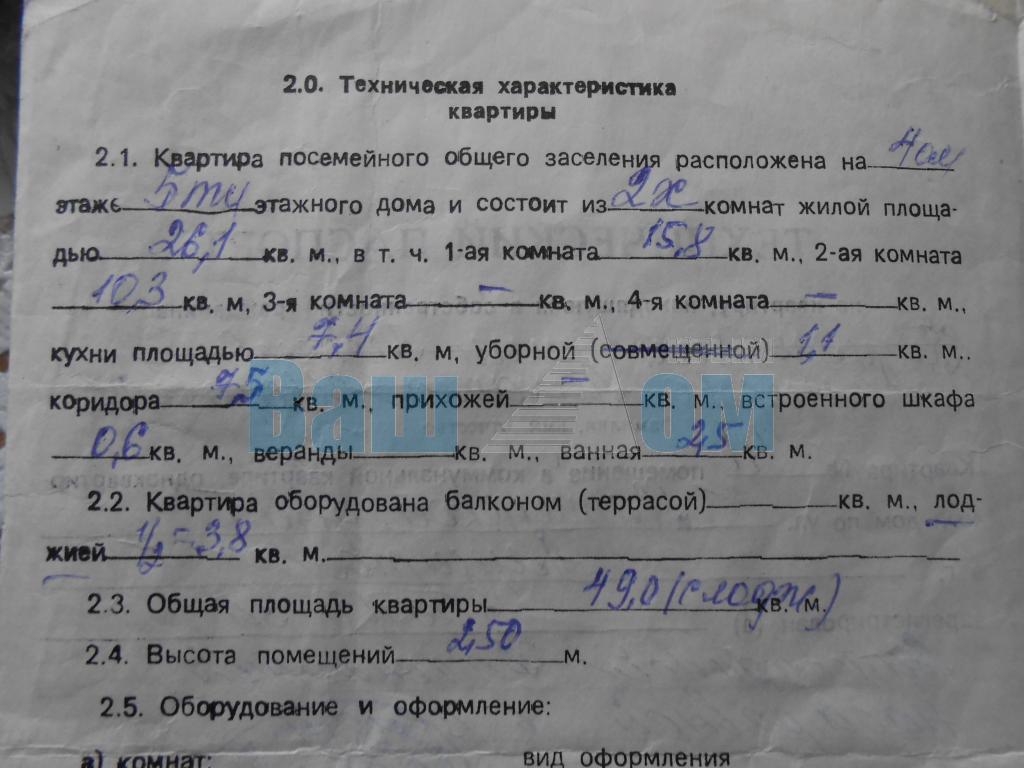 2.0. Техническая характеристика
квартиры
2.1. Квартира посемейного общего заселения расположена на 4ом
этаже 5ти этажного дома и состоит из 2х комнат жилой площа-
дью 26,1 кв. м., в т. ч. 1-ая комната 15,8 кв. м., 2-ая комната
10,3 кв. м, 3-я комната — кв. м., 4-я комната — кв. м.,
кухни площадью 7,4 кв. м, уборной (совмещенной) 1,1 кв. м..
коридора 7,5 кв. м., прихожей — кв. м., встроенного шкафа
Ваш Дом
0,6 кв. м., веранды кв. м., ванная 2,5 кв. м.
2.2. Квартира оборудована балконом (террасой) кв. м., лод-
жией 1/2 = 3,8 кв. м.
2.3. Общая площадь квартиры 49,0 (с лодж) кв. м.
2.4. Высота помещений 2,50 м.
2.5. Оборудование и оформление:
а) комнат: вид оформления